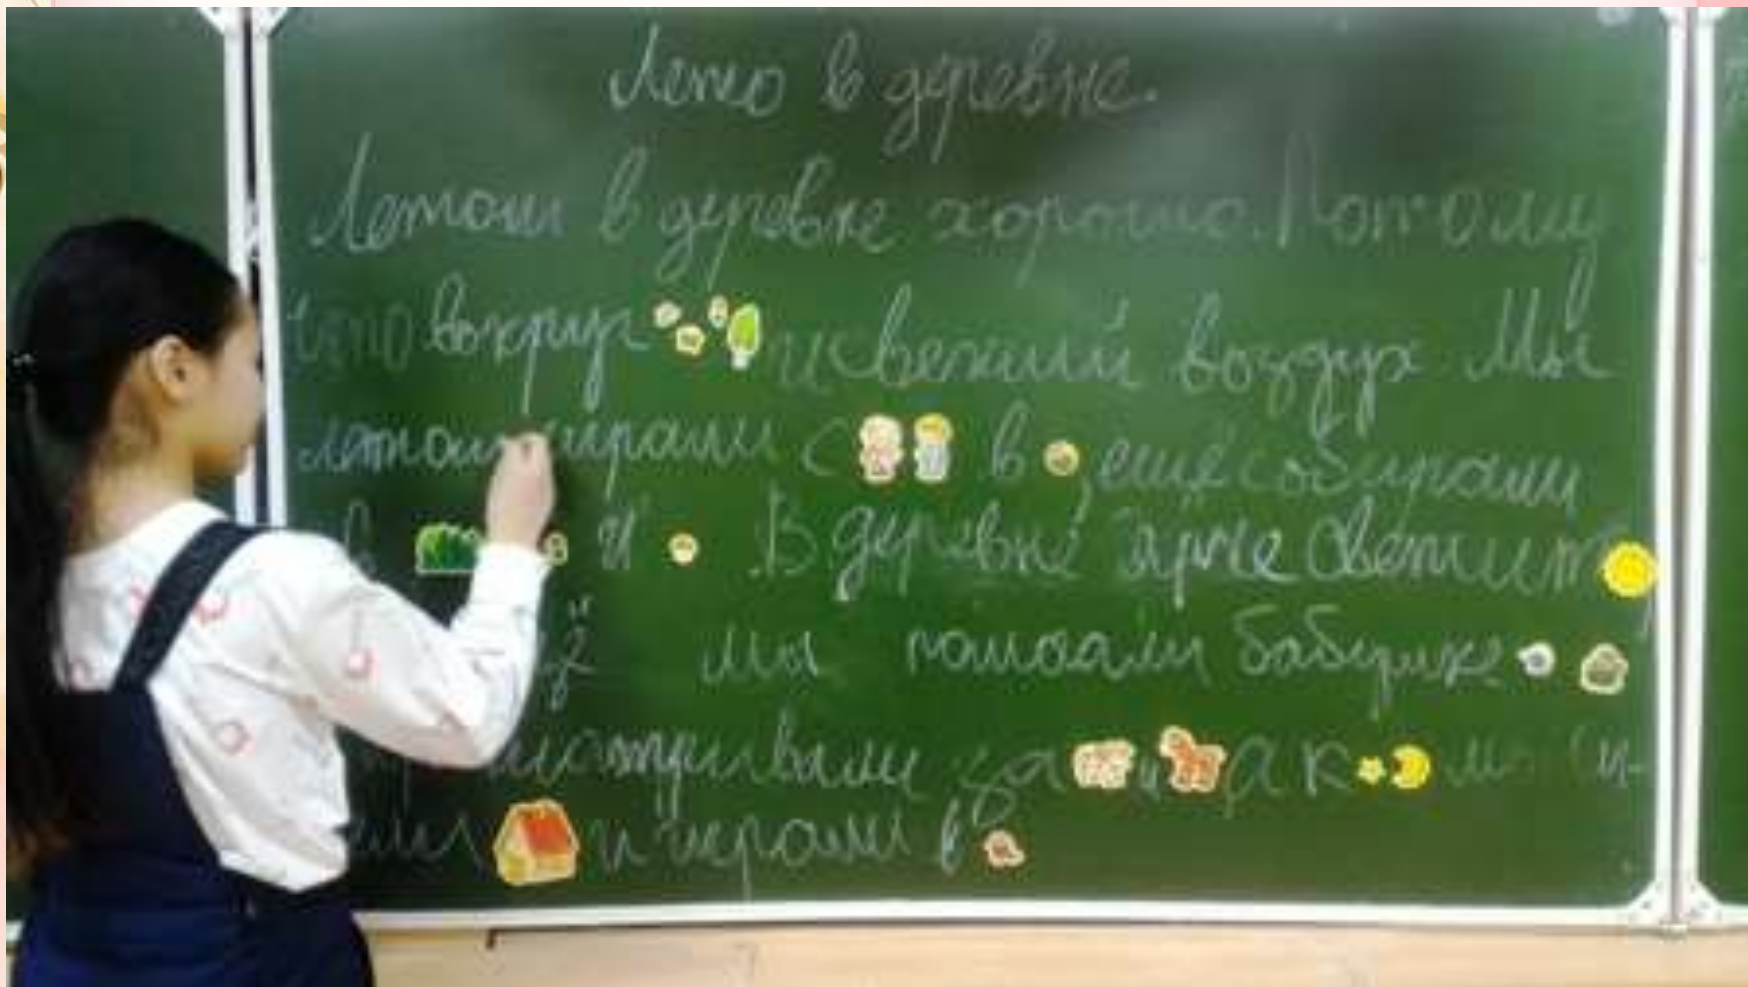 Лето в деревне.
Летом в деревне хорошо. Потому
что вокруг и свежий воздух. Мы
летом играли с в , ещё собирали
в и . В деревне ярче светит
мы помогали бабушке
за и , а к
и играли в